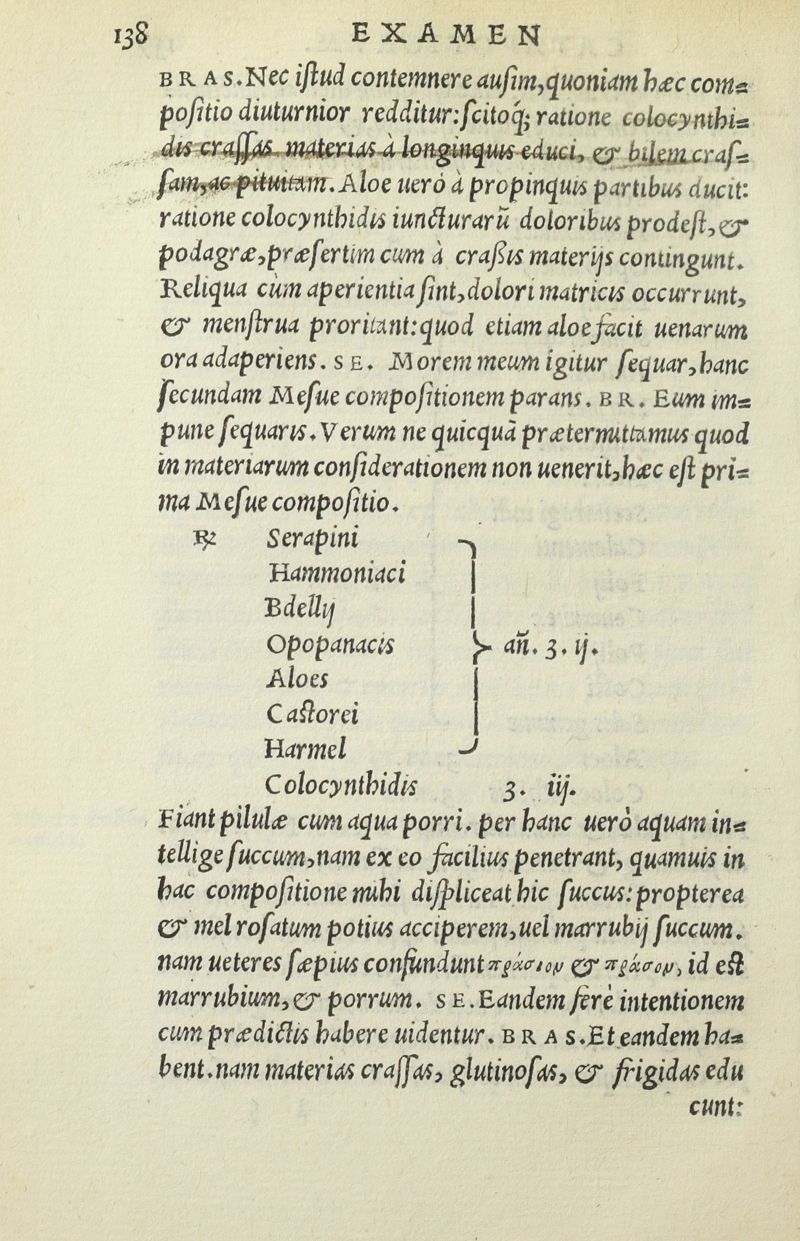 138 EXAMEN
BRAS. Nec iſtud contemnere auſim, quoniam hæc com=
poſitio diuturnior redditur: ſcitoq́; ratione colocynthi=
dis craſſas materias à longinquis educi, & bilem craſ=
ſam, ac pituitam. Aloe uerò à propinquis partibus ducit:
ratione colocynthidis iuncturarũ doloribus prodeſt, &
podagræ, præſertim cum à craſsis materijs contingunt.
Reliqua cùm aperientia ſint, dolori matricis occurrunt,
& menſtrua proritant: quod etiam aloe facit uenarum
ora adaperiens. SE. Morem meum igitur ſequar, hanc
ſecundam Meſue compoſitionem parans. BR. Eum im=
pune ſequaris. Verum ne quicquã prætermittamus quod
in materiarum conſiderationem non uenerit, hæc eſt pri=
ma Meſue compoſitio.
℞ Serapini
Hammoniaci
Bdellij
Opopanacis } añ. ʒ. ij.
Aloes
Caſtorei
Harmel
Colocynthidis ʒ. iij.
Fiant pilulæ cum aqua porri. per hanc uerò aquam in=
tellige ſuccum, nam ex eo facilius penetrant, quamuis in
hac compoſitione mihi diſpliceat hic ſuccus: propterea
& mel roſatum potius acciperem, uel marrubij ſuccum.
nam ueteres ſæpius confundunt πράσιον & πράσον, id eſt
marrubium, & porrum. SE. Eandem ferè intentionem
cum prædictis habere uidentur. BRAS. Et eandem ha=
bent. nam materias craſſas, glutinoſas, & frigidas edu
cunt: